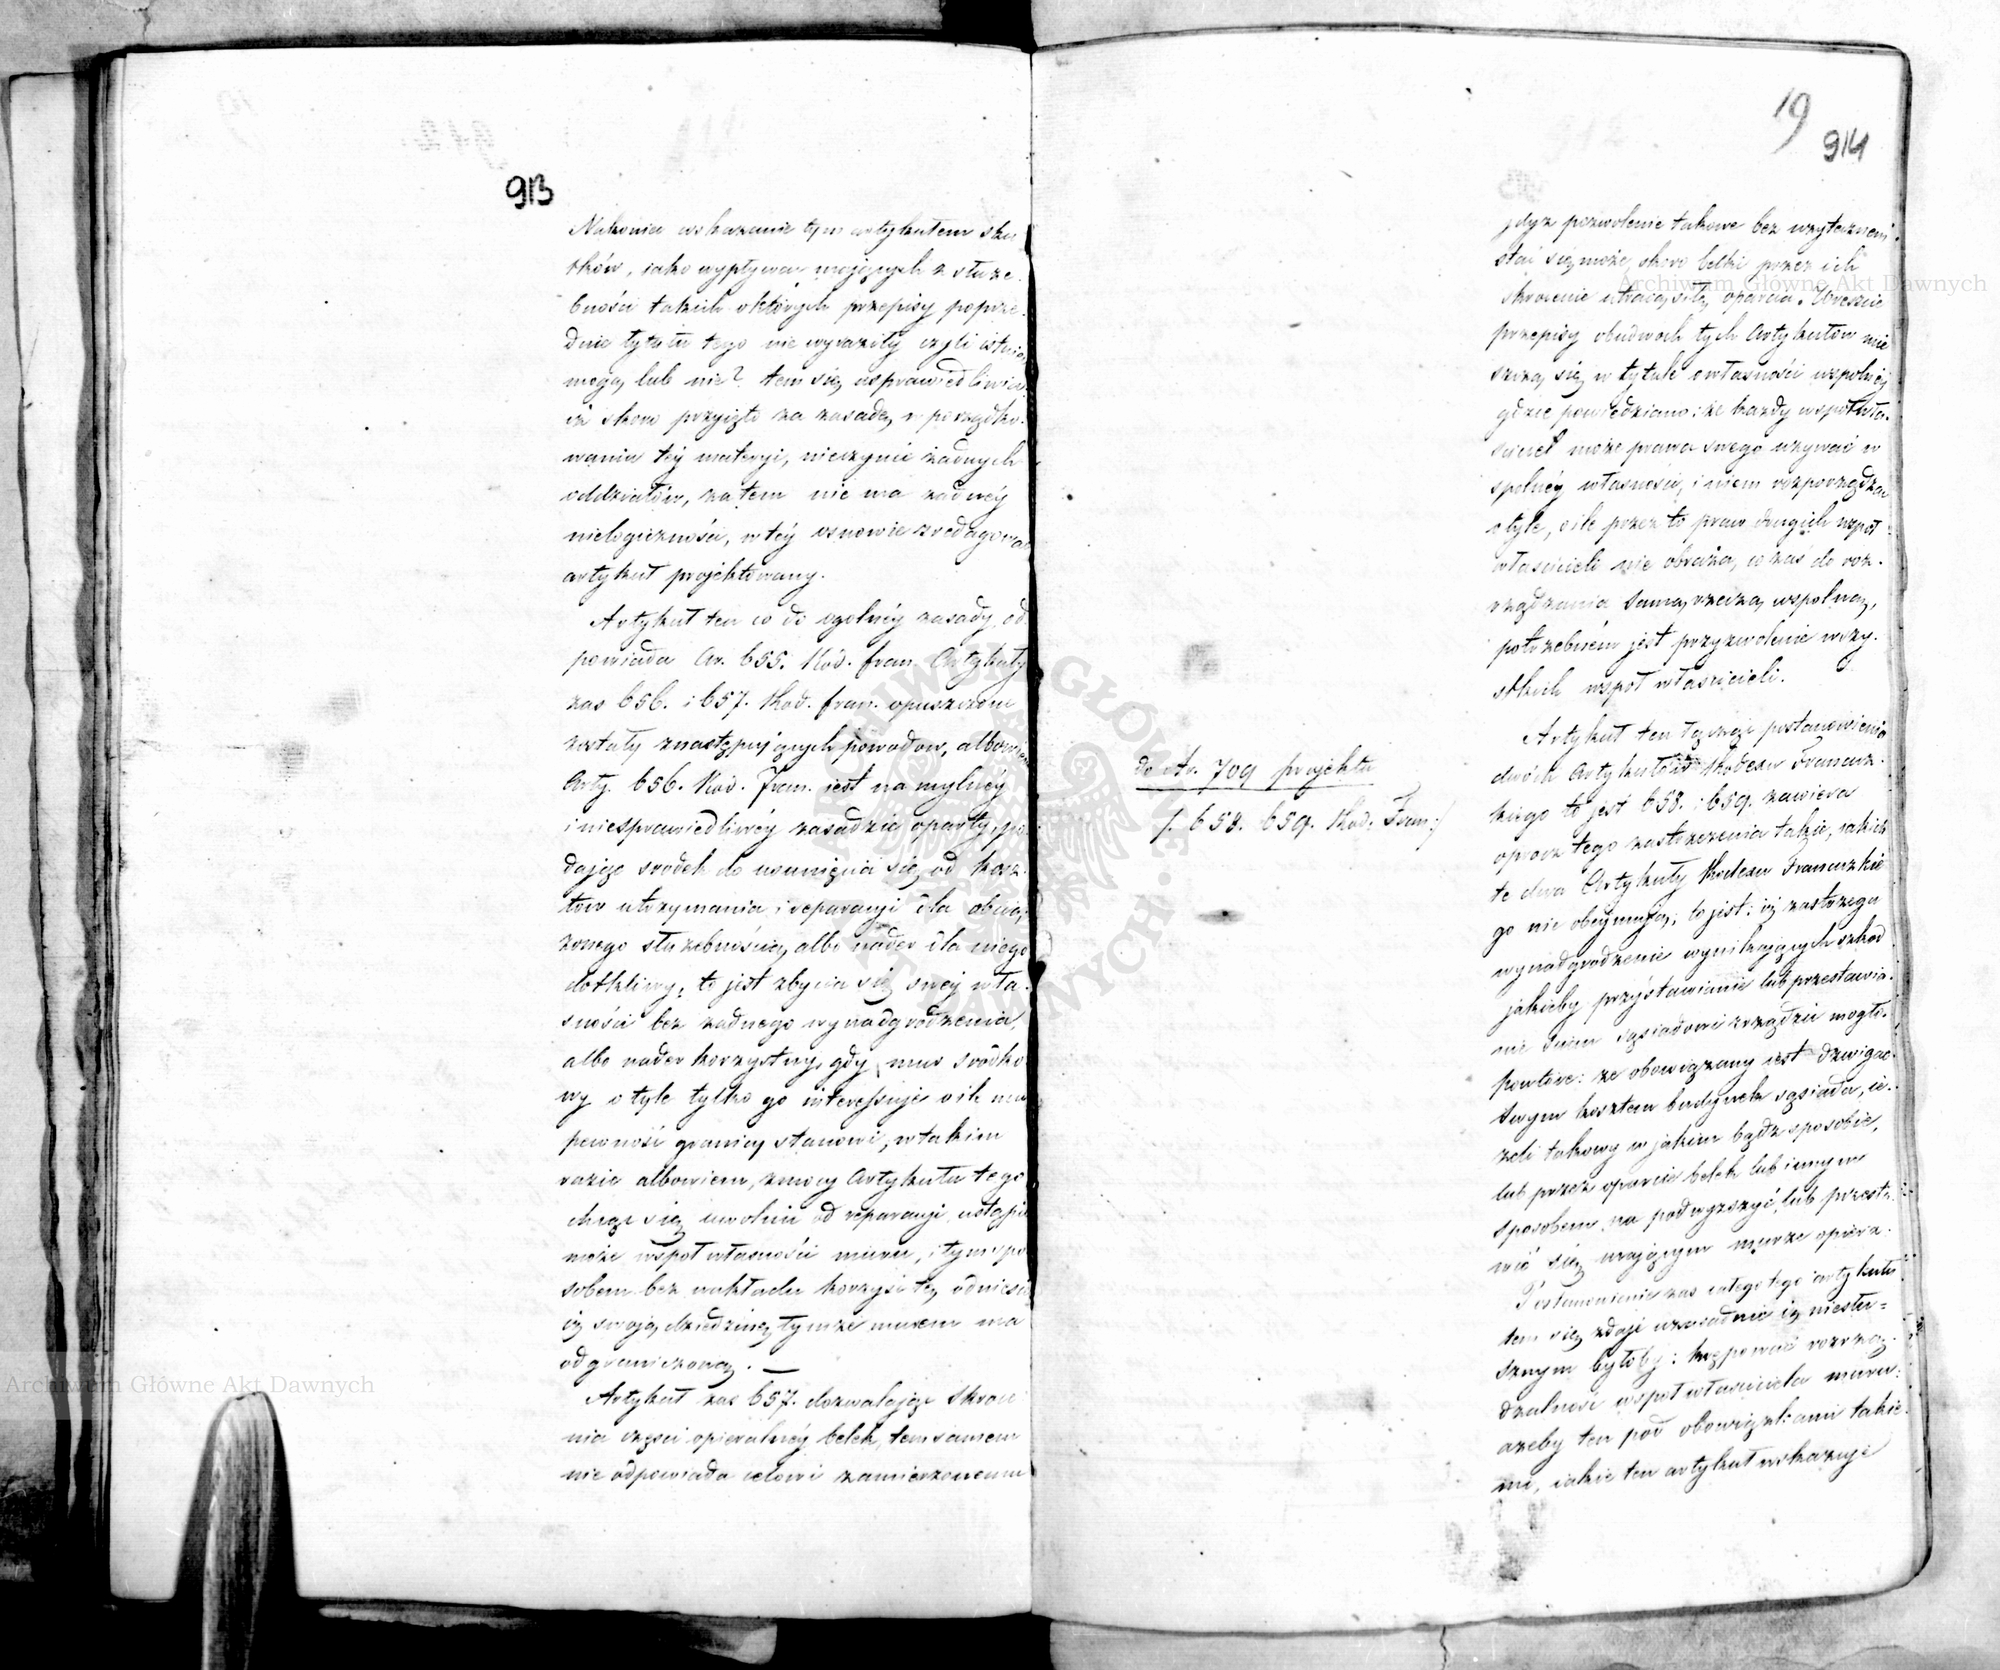 913
Nakonia wskazanie tym artykułem sku
tków, iako wypływać mających z służe
bności takich o których przepisy poprze
dnie tytułu tego nie wyraziły czyli istnieć
mogą lub nie? tem się usprawiedliwia,
iż skoro przyjęto za zasadę w porządko-
waniu téj materyi, nieczynić żadnych
oddziałów, zatem nie ma żadnéy
nielogiczności, w téy osnowie zredagować
artykuł projektowany.
Artykuł ten co do ogólnéy zasady od
powiada Ar. 655. Kod. fran. Artykuły
zas 656. i 657. Kod. fran. opuszczone
zostały z następujących powodow, albowiem
Arty. 656. Kod. Fran. iest na mylnéy
i niesprawiedliwéy zasadzie oparty, po
dając srodek do usunięcia się od kosz
tów utrzymania i reparacyi dla obcią
żonego służebnością, albo nader dla niego
dotkliwy, to jest zbycia się swéy wła
sności bez żadnego wynadgrodzenia,
albo nader korzystny, gdy mur środko
wy o tyle tylko go interessuje o ile mu
pewność granicy stanowi, w takim
razie albowiem, z mocy Artykułu tego
chcąc się uwolnić od reparacyi ustąpić
może współ własności muru, i tym spo
sobem bez nakładu korzyść tę odniesie
iż swoją dziedzinę tymże murem ma
odgraniczoną. —
Artykuł zas 657. dozwalając skróce
nia części opieralnéy belek, tem samem
nie odpowiada celowi zamierzonemu
19
914
gdyz pozwolenie takowe bez uzyteczném
stać się może, skoro belki przez ich
skrocenie utracą siłę oparcia. Wreszcie
przepisy obudwoch tych Artykułów mie
szczą się w tytule o własności wspolnéy
gdzie powiedziano: że każdy współwła-
sciciel może prawa swego używać w
spolnéy własności, i niem rozporządzać
o tyle, o ile przez to praw drugich współ-
właścicieli nie obraża, co zas do roz-
rządzania samą rzeczą wspolną,
potrzebném jest przyzwolenie wszy-
stkich współ właścicieli.
do Ar. 709 projektu
/: 658. 659. Kod. Fran:/
Artykuł ten łącząc postanowienia
dwóch Artykułów Kodexu Francuz-
kiego to jest 658. i 659. zawiera
oprocz tego zastrzeżenia takie, iakich
te dwa Artykuły Kodexu Francuzkie
go nie obeymują; to jest: iż zastrzega
wynadgrodzenie wynikających szkod
jakieby przystawianie lub przestawia-
nie Sąsiadowi zrządzić mogło.
powtóre: że obowiązany iest dzwigać
swym kosztem budynek sąsiada, ie-
żeli takowy w jakim bądź sposobie,
lub przez oparcie belek lub innym
sposobem, na podwyższyć, lub przesta
wić się mającym murze opiera.
Postanowienie zas całego tego artykułu
tem się zdaje uzasadnić iż niesłu=
sznym byłoby: krępować rozrzą-
dzalność współwłaściciela muru:
azeby ten pod obowiązkami takie
mi, iakie ten artykuł wskazuje